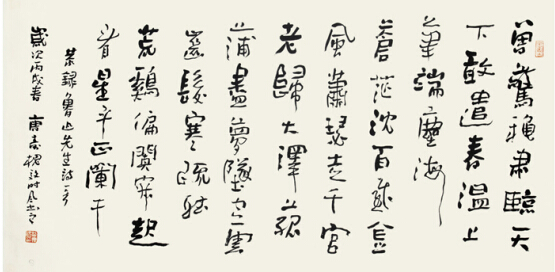 曾驚穐肅臨天
下敢遣春溫上
筆端塵海
蒼茫沈百感金
風蕭瑟走千官
老歸大澤菰
蒲盡夢墜空雲
齒髮寒竦聽
荒鷄偏闃寂起
看星斗正闌干
錄魯迅先生詩一首
歲次丙戌春